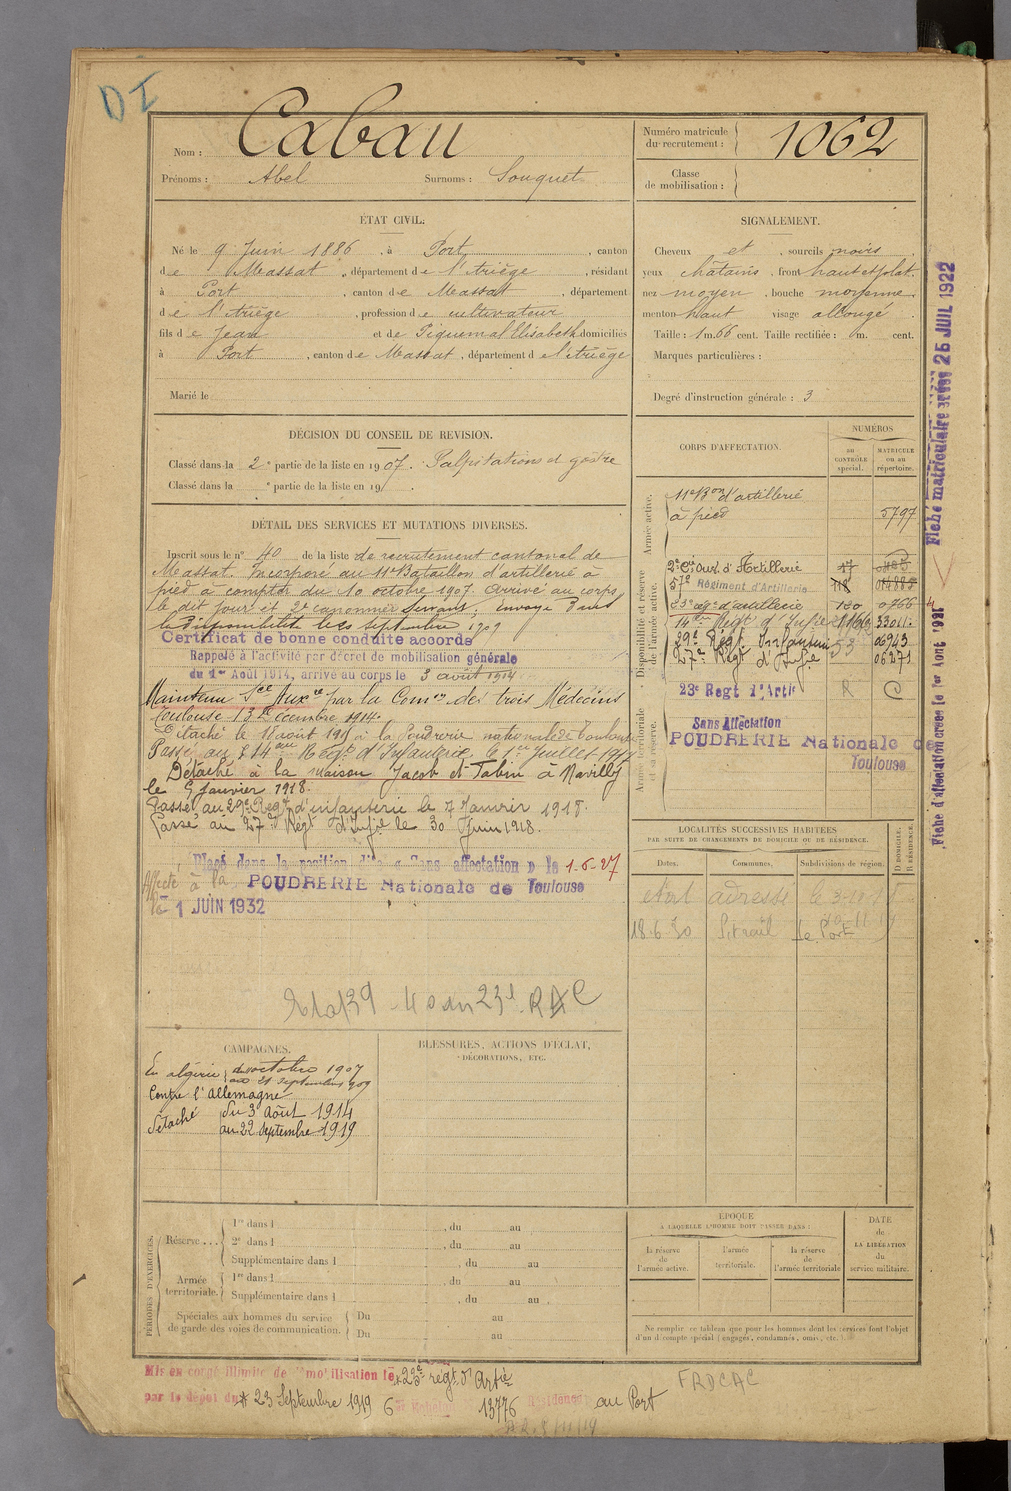 DI
Nom : Cabau
Prénoms : Abel Surnoms : Souquet
Numéro matricule du recrutement : 1062
Classe de mobilisation :
ÉTAT CIVIL.
Né le 9 Juin 1886, à Port, canton
de Massat, département de l'Ariège, résidant
à Port, canton de Massat, département
de l'Ariège, profession de cultivateur
fils de Jean et de Piquemal Elisabeth domiciliés
à Port, canton de Massat, département de l'Ariège
Marié le
SIGNALEMENT.
Cheveux et, sourcils noirs
yeux châtains, front haut et plat.
nez moyen, bouche moyenne
menton haut visage allongé.
Taille : 1 m. 66 cent. Taille rectifiée : m. cent.
Marques particulières :
Degré d'instruction générale : 3
DÉCISION DU CONSEIL DE REVISION.
Classé dans la 2e partie de la liste en 1907. Palpitations et goitre
Classé dans la e partie de la liste en 19 .
CORPS D'AFFECTATION.
NUMÉROS
au CONTRÔLE spécial.
MATRICULE ou au répertoire.
Armée active.
11e Bon d'artillerie
à pied 5797
Disponibilité et réserve de l'armée active.
57e Régiment d'Artillerie
23e reg d'artillerie 120
14e Regt d'Infie
29e Régt Infanterie 06943
27e Régt d'Infie 06271
Armée territoriale et sa réserve.
23e Regt d'Artie R C
Sans Affectation
POUDRERIE Nationale de
Toulouse
DÉTAIL DES SERVICES ET MUTATIONS DIVERSES.
Inscrit sous le n° 40 de la liste de recrutement cantonal de
Massat. Incorporé au 11e Bataillon d'artillerie à
pied à compter du 10 octobre 1907. Arrivé au corps
le dit jour et 2e canonnier servant. Envoyé dans
la Disponibilité le septembre 1909
Certificat de bonne conduite accordé
Rappelé à l'activité par décret de mobilisation générale
du 1er Août 1914, arrivé au corps le 3 août 1914
Maintenu Sce Auxre par la Comon des trois Médecins
Toulouse 13 Décembre 1914.
Détaché le août 1915 à la Poudrerie nationale de Toulouse
Passé au 14eme Régt d'Infanterie, le 1er Juillet 1917
Détaché à la maison Jacob et Tabin à Navilly
le 9 Janvier 1918.
Passé au 29e Régt d'infanterie le 7 Janvier 1918.
Passé au 27e Régt d'Infie le 30 Juin 1918.
Placé dans la position dite « Sans affectation » le 1-6-27
Affecté à la POUDRERIE Nationale de Toulouse
le 1 JUIN 1932
Fiche matriculaire créée 25 JUIL 1922
Fiche d'affectation créée le 1er Aout 1931
LOCALITÉS SUCCESSIVES HABITÉES
PAR SUITE DE CHANGEMENTS DE DOMICILE OU DE RÉSIDENCE.
Dates. Communes. Subdivisions de région. D DOMICILE. R RÉSIDENCE.
18.6.30 le Port
CAMPAGNES.
En algérie du octobre 1907
au 21 septembre 1909
Contre l'Allemagne
détaché du 3 Août 1914
au 22 Septembre 1919
BLESSURES, ACTIONS D'ÉCLAT,
DÉCORATIONS, ETC.
PÉRIODES D'EXERCICES.
Réserve... 1re dans l , du au
2e dans l , du au
Supplémentaire dans l , du au
Armée territoriale. 1re dans l , du au
Supplémentaire dans l , du au .
Spéciales aux hommes du service de garde des voies de communication. Du au
Du au
ÉPOQUE
À LAQUELLE L'HOMME DOIT PASSER DANS :
la réserve de l'armée active.
l'armée territoriale.
la réserve de l'armée territoriale
DATE de LA LIBÉRATION du service militaire.
Ne remplir ce tableau que pour les hommes dont les services font l'objet
d'un décompte spécial (engagés, condamnés, omis, etc.)
Mis en congé illimité de démobilisation le 23e régt d'Artie
par le dépôt du 23 Septembre 1919 6e 13776 Résidence au Port
FRDCAC